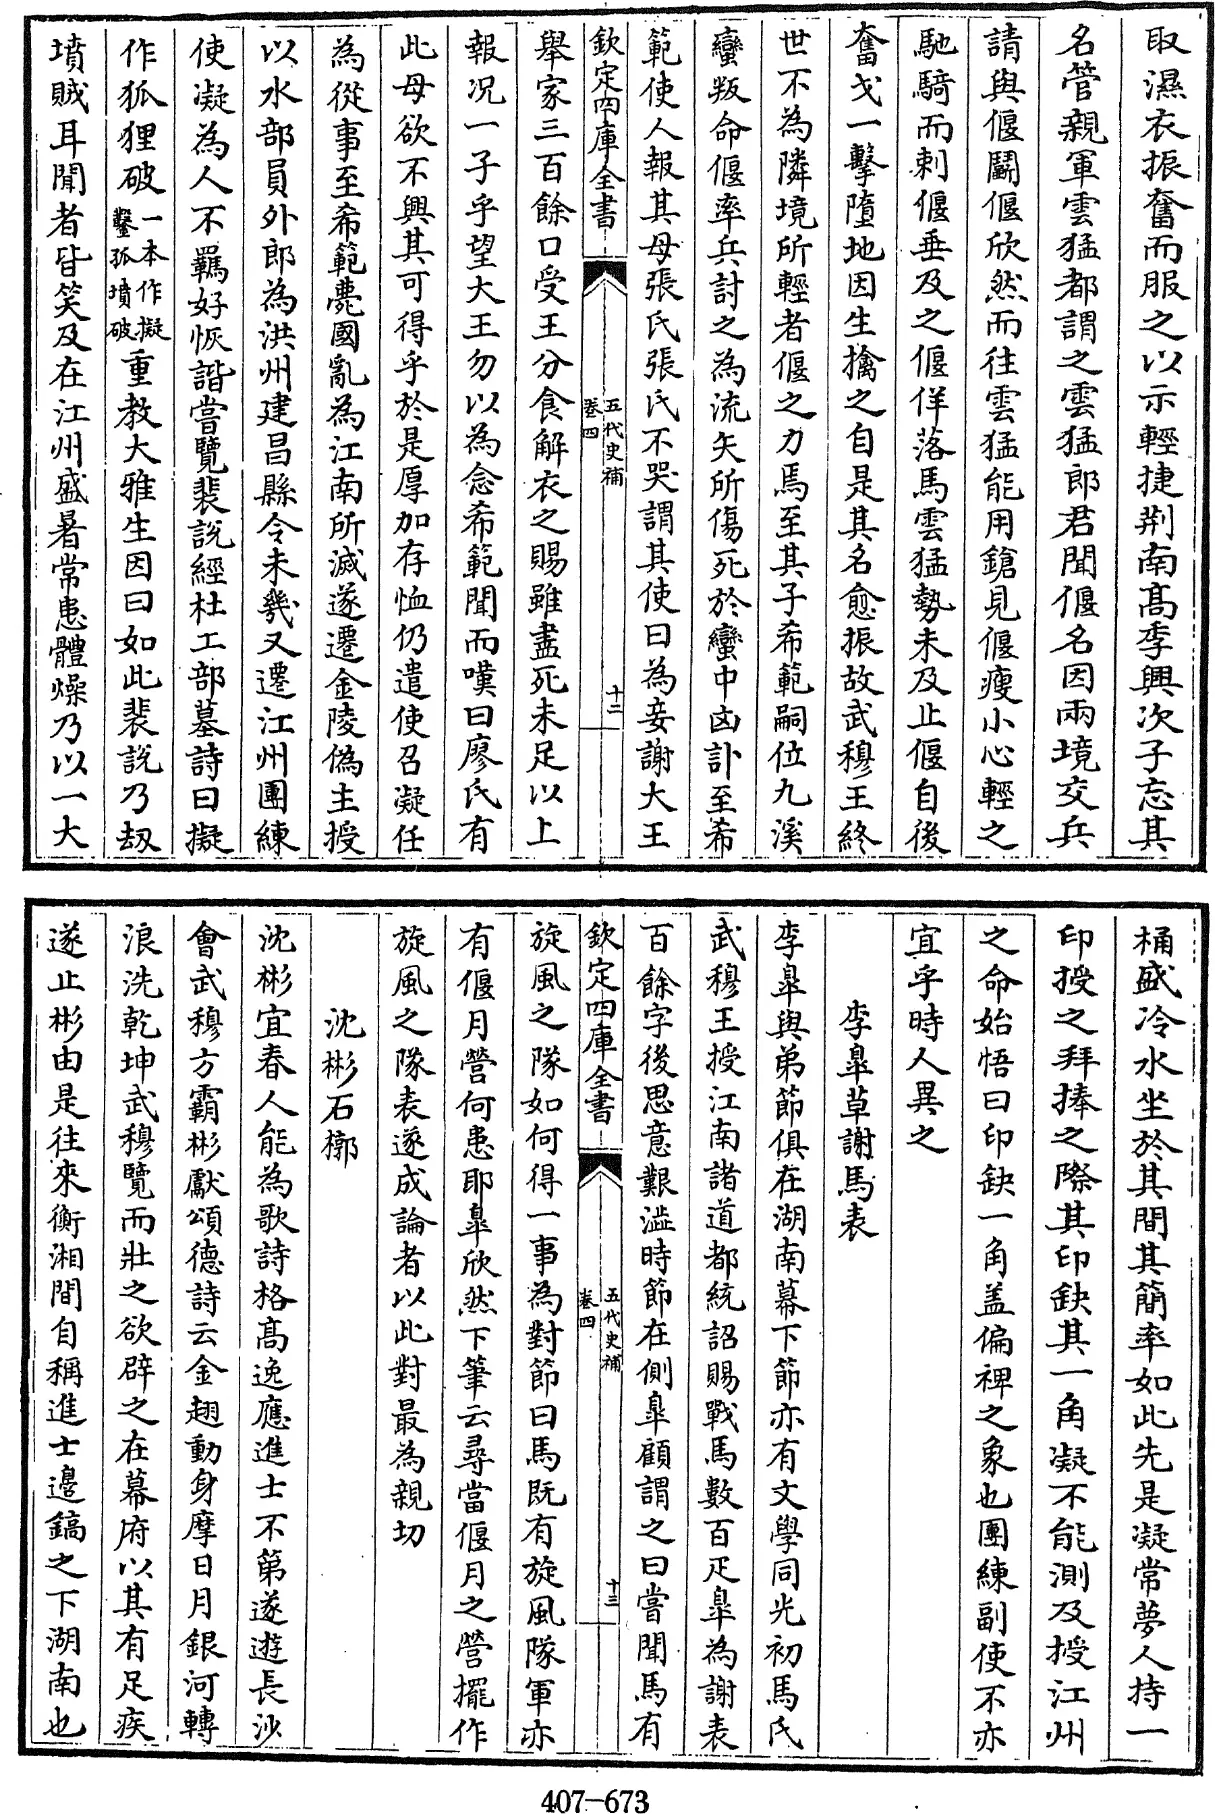 取濕衣振奮而服之以示輕捷荆南髙季興次子忘其
名管親軍雲猛都謂之雲猛郎君聞偃名因兩境交兵
請與偃鬭偃欣然而往雲猛能用鎗見偃瘦小心輕之
馳騎而刺偃垂及之偃佯落馬雲猛勢未及止偃自後
奮戈一擊墮地因生擒之自是其名愈振故武穆王終
世不為隣境所輕者偃之力焉至其子希範嗣位九溪
蠻叛命偃率兵討之為流矢所傷死於蠻中凶訃至希
範使人報其母張氏張氏不哭謂其使曰為妾謝大王
欽定四庫全書
五代史補
卷四
十二
舉家三百餘口受王分食解衣之賜雖盡死未足以上
報况一子乎望大王勿以為念希範聞而嘆曰廖氏有
此母欲不興其可得乎於是厚加存恤仍遣使召凝任
為從事至希範薨國亂為江南所滅遂遷金陵偽主授
以水部員外郎為洪州建昌縣令未幾又遷江州團練
使凝為人不羈好恢諧嘗覽裴說經杜工部墓詩曰擬
作狐狸破一本作擬鑿孤墳破重教大雅生因曰如此裴說乃刼
墳賊耳聞者皆笑及在江州盛暑常患體燥乃以一大
桶盛冷水坐於其間其簡率如此先是凝常夢人持一
印授之拜捧之際其印缺其一角凝不能測及授江州
之命始悟曰印缺一角盖偏裨之象也團練副使不亦
宜乎時人異之
李臯草謝馬表
李臯與弟節俱在湖南幕下節亦有文學同光初馬氏
武穆王授江南諸道都統詔賜戰馬數百疋臯為謝表
百餘字後思意艱澁時節在側臯顧謂之曰嘗聞馬有
欽定四庫全書
五代史補
卷四
十三
旋風之隊如何得一事為對節曰馬既有旋風隊軍亦
有偃月營何患耶臯欣然下筆云尋當偃月之營擺作
旋風之隊表遂成論者以此對最為親切
沈彬石槨
沈彬宜春人能為歌詩格髙逸應進士不第遂遊長沙
會武穆方霸彬獻頌德詩云金翅動身摩日月銀河轉
浪洗乾坤武穆覽而壯之欲辟之在幕府以其有足疾
遂止彬由是往來衡湘間自稱進士邊鎬之下湖南也
407-673